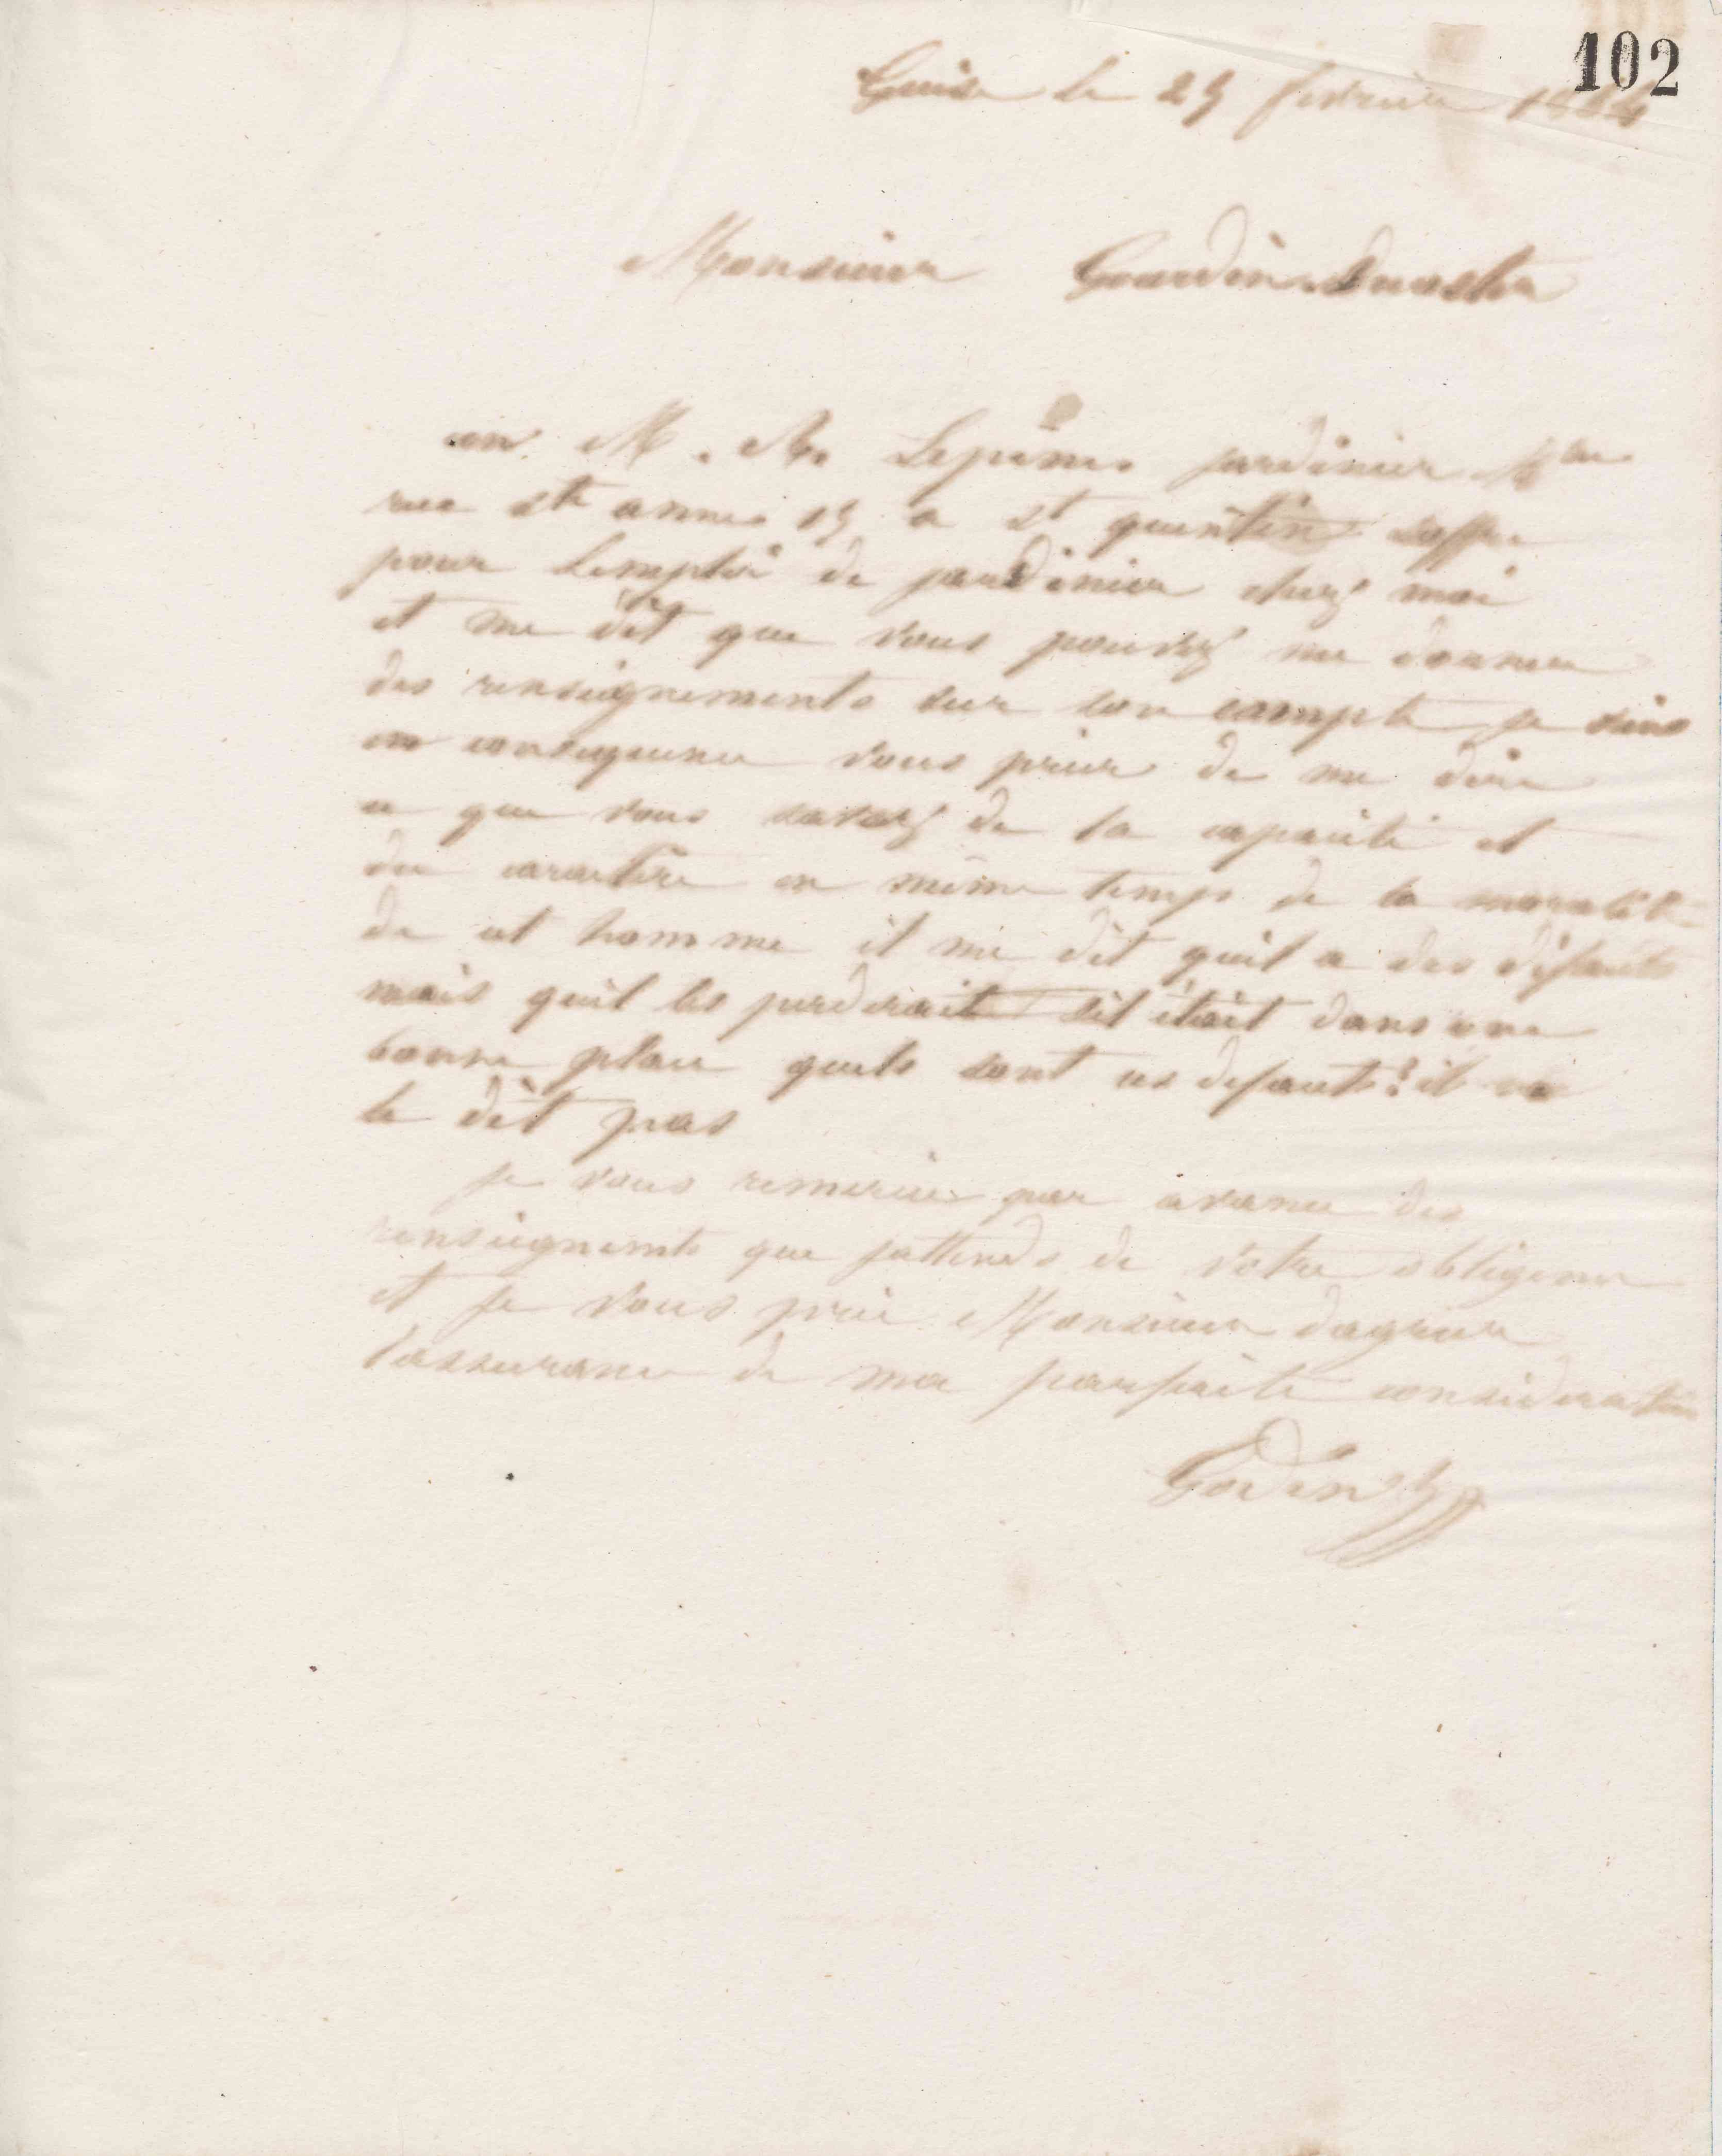 102
Guise le 25 février 1864
Monsieur Gourdin
un M. Lepine jardinier
rue Ste anne 15 a St quentin soffre
pour Lemploi de jardinier chez moi
et me dit que vous pouvez me donner
des renseignements sur son compte je viens
en consequence vous prier de me dire
ce que vous savez de la capacité et
du caractère en même temps de la moralité
de cet homme il me dit quil a des défauts
mais quil les perderait sil était dans une
bonne place quels sont ces defauts? il ne
le dit pas
je vous remercie par avance des
renseignements que jattends de votre obligence
et je vous prie Monsieur dagreer
lassurance de ma parfaite considération
Godin